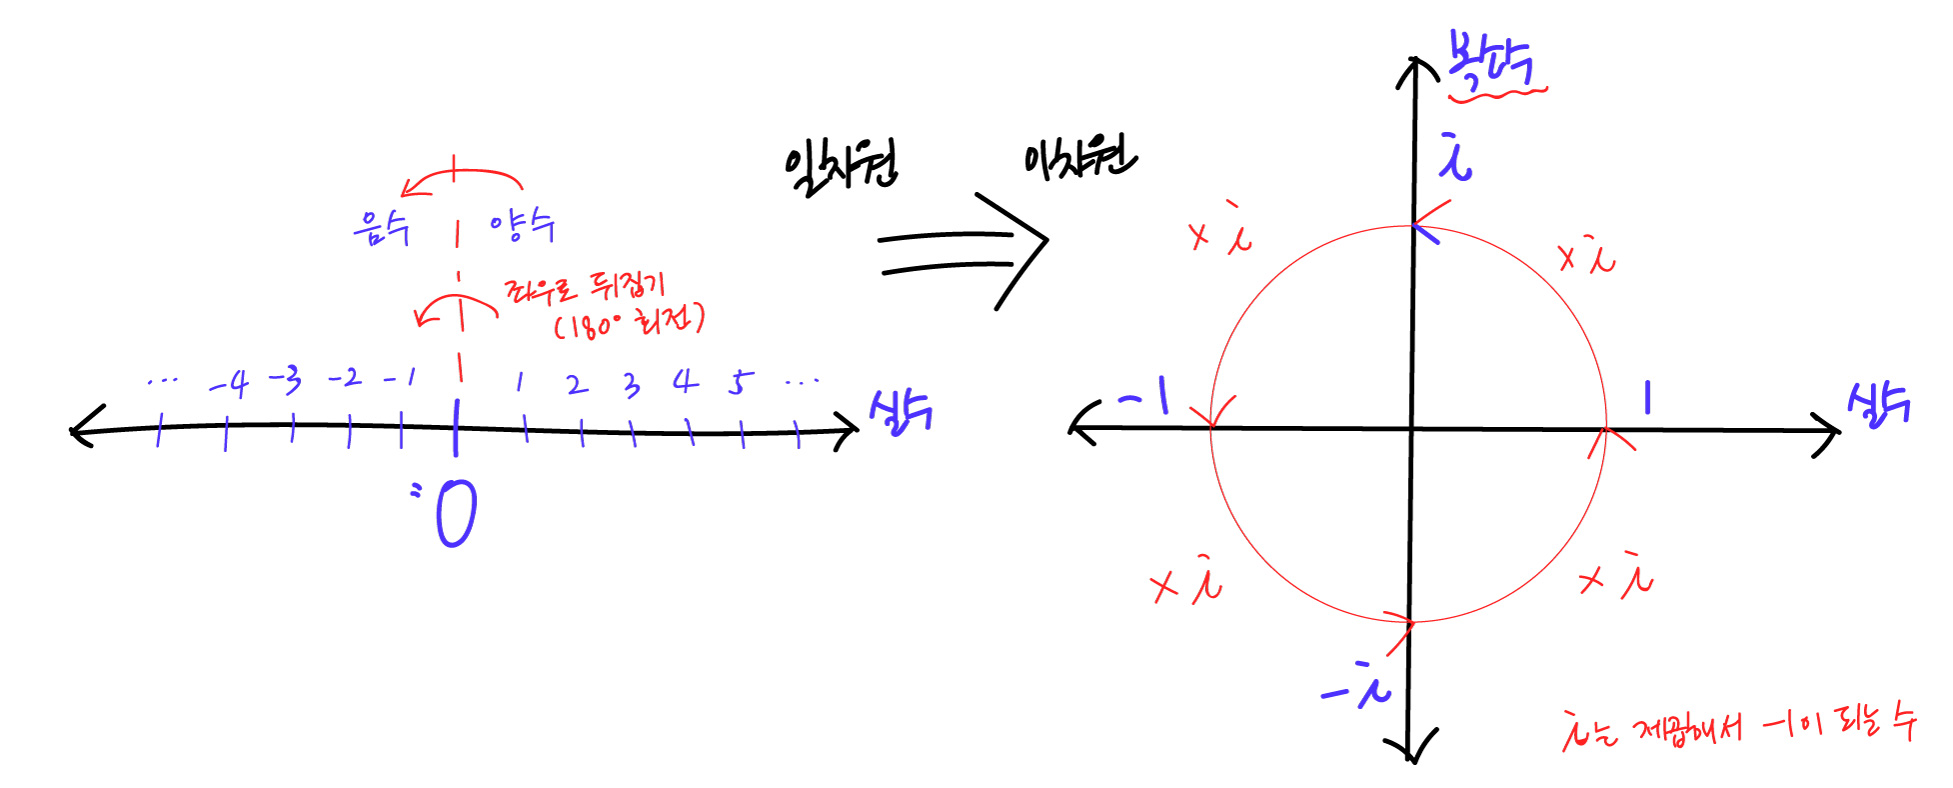 음수 양수
좌우로 뒤집기
(180° 회전)
... -4 -3 -2 -1 1 2 3 4 5 ...
실수
0
일차원 이차원
복소수
i
×i ×i
-1 1 실수
×i ×i
-i
i는 제곱해서 -1이 되는 수